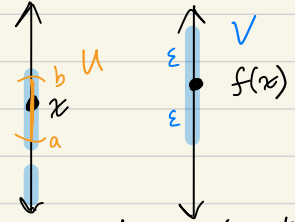 b U
x
a
ε V
f(x)
ε